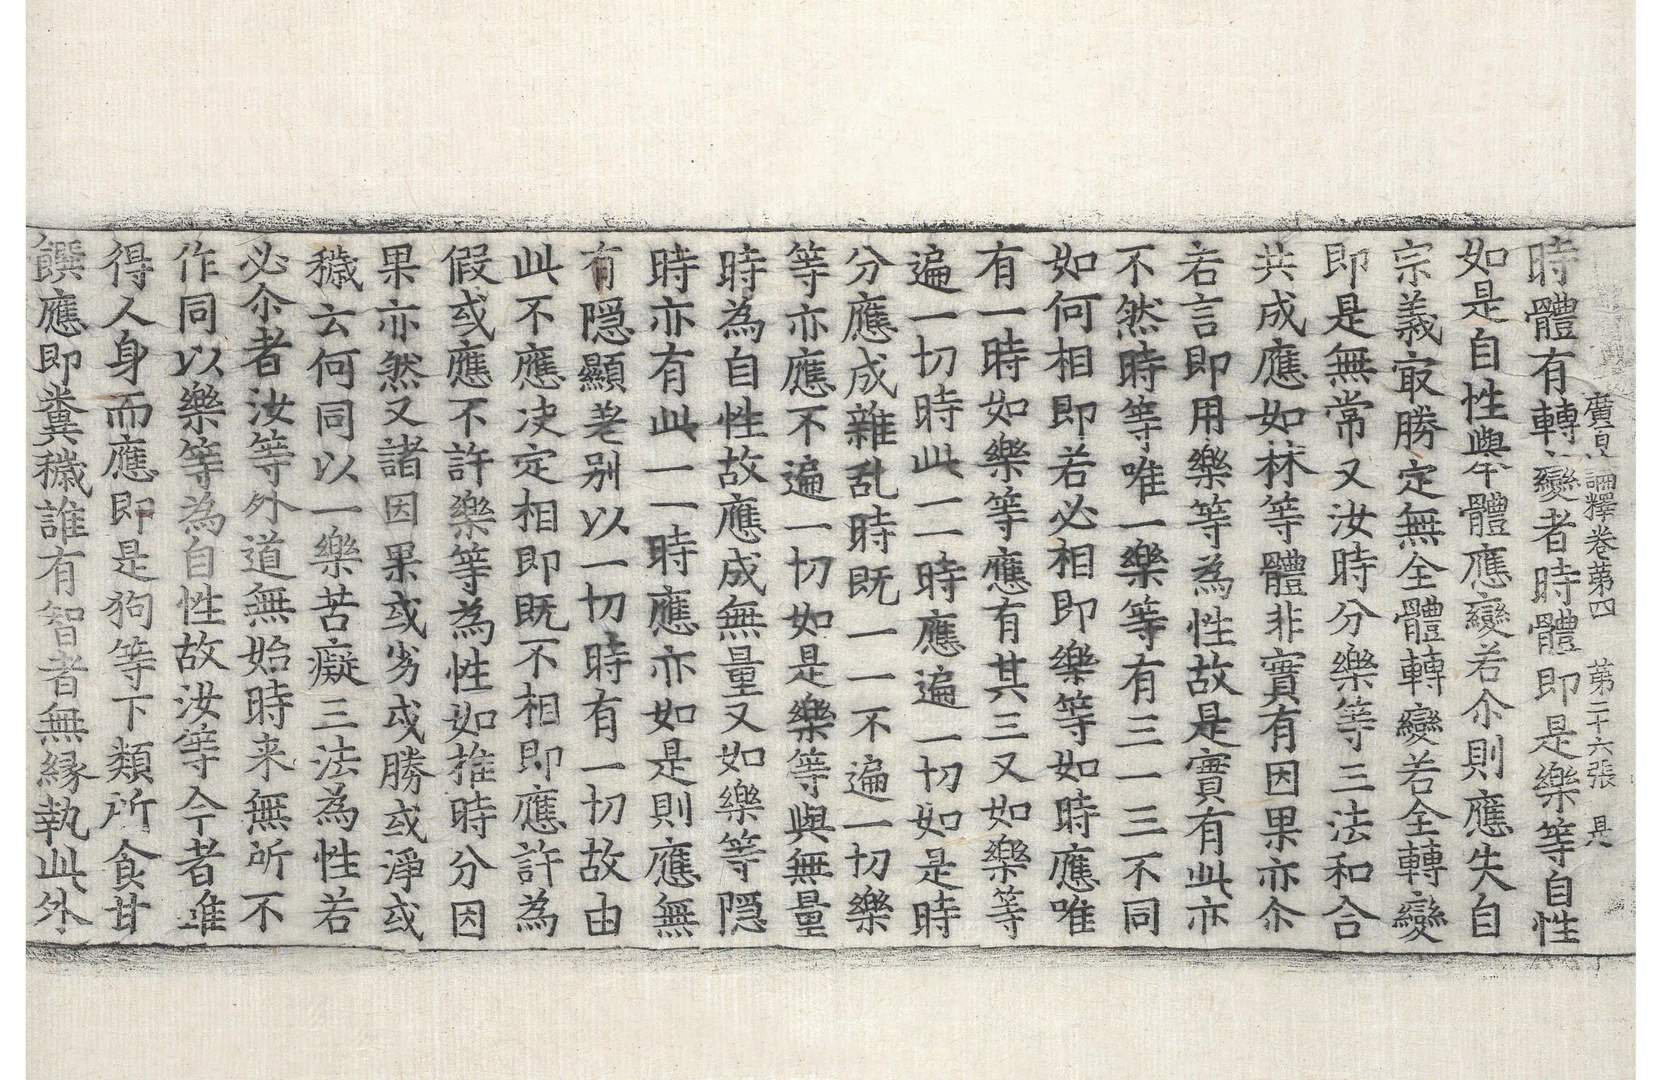 廣百論釋卷第四 第二十六張 是
時體有轉變者時體即是樂等自性
如是自性與體應變若尒則應失自
宗義㝡勝定無全體轉變若全轉變
即是無常又汝時分樂等三法和合
共成應如林等體非實有因果亦尒
若言即用樂等為性故是實有此亦
不然時等唯一樂等有三一三不同
如何相即若必相即樂等如時應唯
有一時如樂等應有其三又如樂等
遍一切時此一一時應遍一切如是時
分應成雜乱時既一一不遍一切樂
等亦應不遍一切如是樂等與無量
時為自性故應成無量又如樂等隱
時亦有此一一時應亦如是則應無
有隱顯差別以一切時有一切故由
此不應決定相即既不相即應許為
假或應不許樂等為性如推時分因
果亦然又諸因果或劣或勝或淨或
穢云何同以一樂苦癡三法為性若
必尒者汝等外道無始時来無所不
作同以樂等為自性故汝等今者雖
得人身而應即是狗等下類所食甘
饌應即糞穢誰有智者無緣執此外